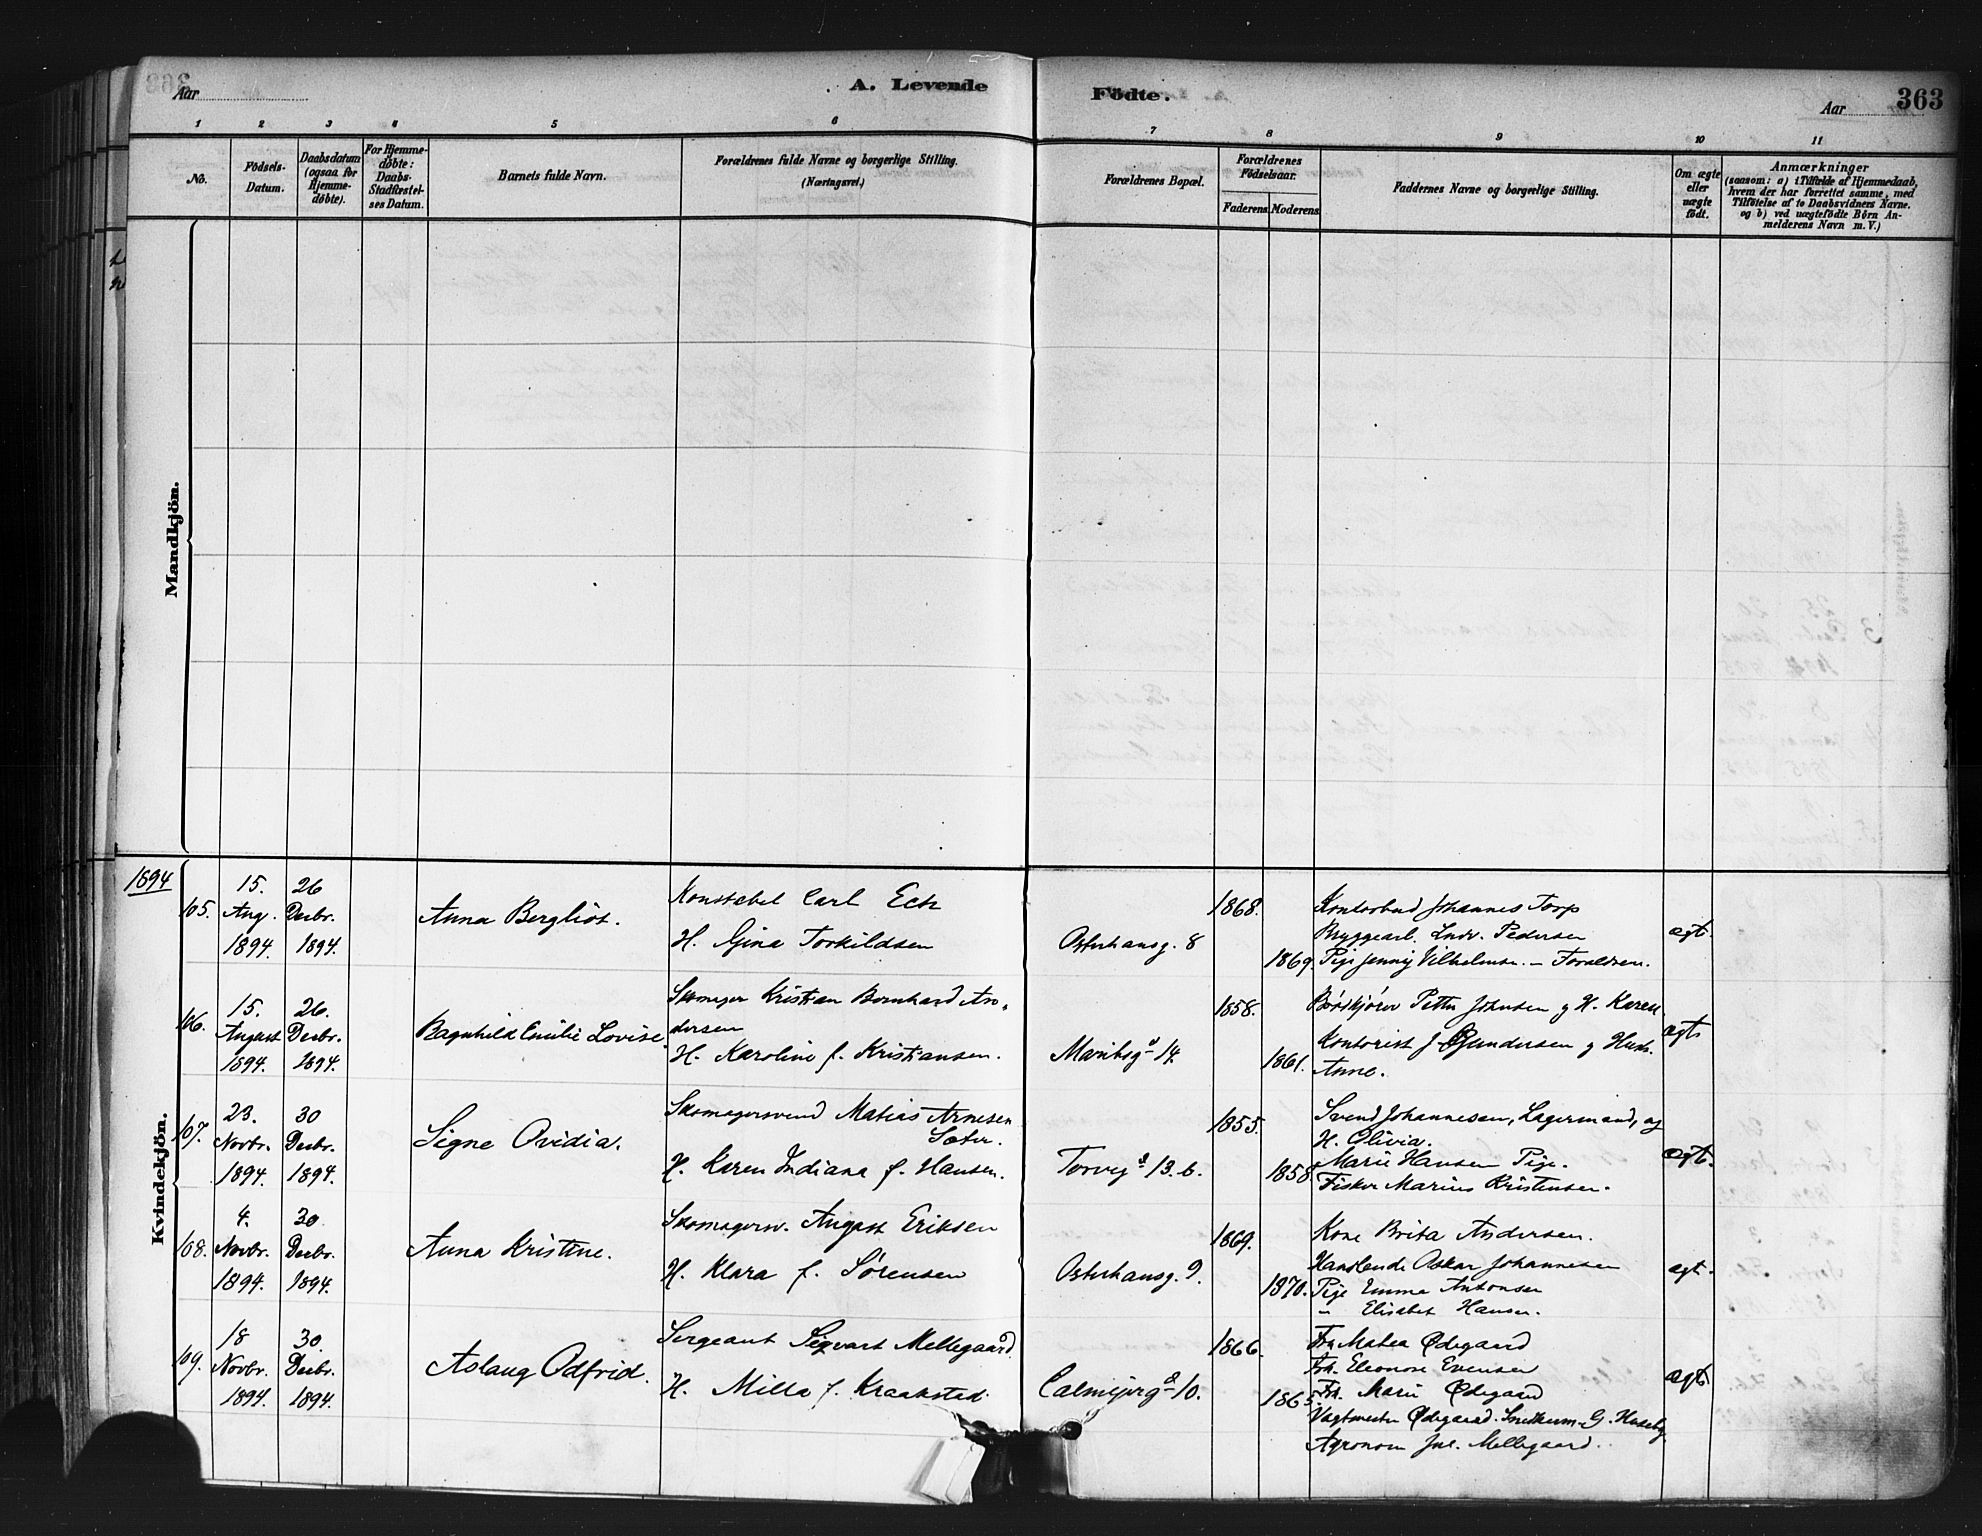 Aar
A. Levende
Födte.
Aar
363
1 2 3 4 5 6 7 8 9 10 11
No.
Födsels-Datum.
Daabsdatum (ogsaa for Hjemme-döbte).
For Hjemme-döbte: Daabs-Stadfæstel-ses Datum.
Barnets fulde Navn.
Forældrenes fulde Navne og borgerlige Stilling.
(Næringsvei.)
Forældrenes Bopæl.
Forældrenes Födselsaar.
Faderens Moderens
Faddernes Navne og borgerlige Stilling.
Om ægte eller uægte födt.
Anmærkninger
(saasom: a) i Tilfælde af Hjemmedaab,
hvem der har forrettet samme, med
Tilföielse af to Daabsvidners Navne.
og b) ved uægtefödte Börn An-
melderens Navn m. V.)
Mandkjön.
Kvindekjön.
1894
105.
15. Aug. 1894
26 Decbr. 1894.
Anna Bergliot.
Konstabel Carl Eck
H. Gina Torkildsen
Osterhausg. 8
1868.
1869.
Kontorbud Johannes Torp
Bryggearb. Ludv. Pedersen
Pige Jenny Vilhelmsen. - Forældren.
ægt.
106.
15. August 1894.
26. Decbr. 1894.
Ragnhild Emilie Lovise
Skomager Kristian Bernhard An-
dersen
H. Karoline f. Kristiansen.
Maribog 14.
1858.
1861.
Petter Johnsen g H. Karen
Kontorist J. Gundersen g Hustr.
Anne.
ægt
107.
23. Novbr. 1894.
30 Decbr. 1894.
Signe Ovidia.
Skomagersvend Matias Arnesen
Sæter.
H. Karen Indiana f. Hansen.
Torvg 13. b.
1855.
1858.
Svend Johannesen, Lagermand, og
H. Olivia.
Marie Hansen Pige.
Fisker Marius Kristensen.
ægt.
108.
4. Novbr. 1894.
30 Decbr. 1894.
Anna Kristine.
Skomagersv. August Eriksen
H. Klara f. Sørensen
Osterhausg. 9.
1869.
1870.
Kone Brita Andersen.
Handlende Oskar Johannesen
Pige Emma Antonsen
" Elisabet Hansen.
ægt.
109.
18 Novbr. 1894.
30. Decbr. 1894.
Aslaug Odfrid.
Sergeant Sigvart Mellegaard
H. Milla f. Kraakstad.
Calmejerg 10.
1866.
1865.
Fru Matea Ødegaard
Frk. Eleonore Evensen
Frk. Marie Ødegaard
Vagtmester Ødegaard. G. Huseby
Agronom Jul. Mellegaard.
ægt